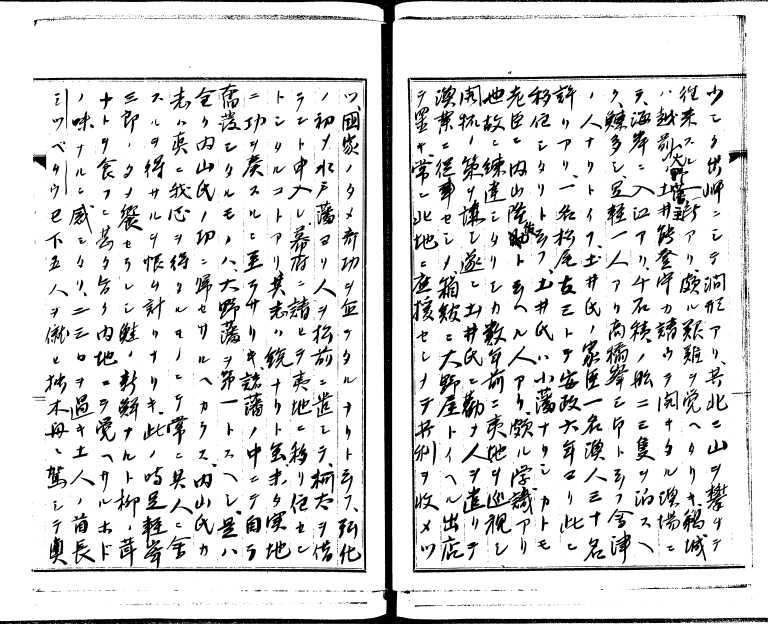 少シク出岬ニシテ洞形アリ其北ニ山ヲ攀チテ
往来スル一断アリ頗ル艱難ヲ覚ヘタリキ鵜城
ハ越前大野藩主土井能登守カ請ウテ開キタル漁場ニ
テ海岸ニ入江アリ千石積ノ船二三隻ヲ泊スヘ
ク鰊多シ足軽一人アリ高橋峯三郎ト云フ会津
ノ人ナリトイフ土井氏ノ家臣一名漁人三十名
許リアリ一名松尾友三トテ安政六年ヨリ此ニ
移住シタリト云フ土井氏ハ小藩ナリシカトモ
老臣ニ内山隆佐ト云ヘル人アリ頗ル学識アリ
世故ニ練達シタリシカ数年前ニ夷地ヲ巡視シ
開拓ノ策ヲ講シ遂ニ土井氏ニ勧メ人ヲ遣リテ
漁業ニ従事セシメ箱館ニ大野屋トイヘル出店
ヲ置キ常ニ此地ニ応援セシメテ其利ヲ收メツ
ツ国家ノタメ奇功ヲ立テタルナリト云フ弘化
ノ初メ水戸藩ヨリ人ヲ松前ニ遣シテ樺太ヲ借
ラント申入レ幕府ニ請ヒテ夷地ニ移リ住セン
トシタルコトアリ其志ハ銃ナリト雖未タ実地
ニ功ヲ奏スルニ至ラサリキ諸藩ノ中ニテ自ラ
奮発シタルモノハ大野藩ヲ第一トスヘシ是ハ
全ク内山氏ノ功ニ帰セサルヘカラス内山氏カ
志ハ真ニ我心ヲ得タルモノニテ常ニ其人ニ会
スルヲ得サルヲ恨ミ計リナリキ此ノ時足軽峯
三郎ノタメ饗セラレシ鮭ノ新鮮ナルト柳ノ茸
ナトヲ食フニ甚タ旨ク内地ニテ覚ヘサルホト
ノ味ナルニ感シタリ二三日ヲ過キ土人ノ酋長
シツベタウ已下五人ヲ僦ヒ独木舟ニ駕シテ奥